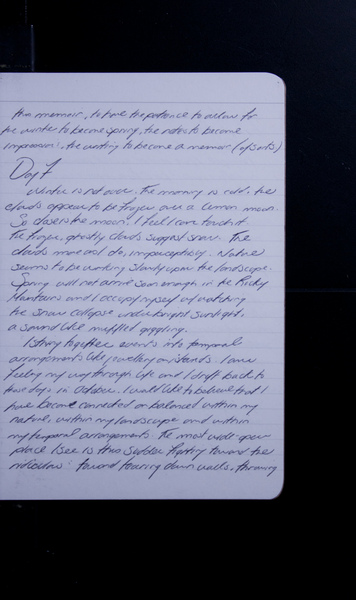 this memoir, to have the patience to allow for
the winter to become spring, the notes to become
impressions, the writing to become a memoir (of sorts)
Day 7
Winter is not over. The morning is cold, the
clouds appear to be frozen over a lemon moon.
So close is the moon, I feel I can touch it.
The frozen, ghostly clouds suggest snow. The
clouds move and do, imperceptibly. Nature
seems to be working slowly upon the landscape.
Spring will not arrive soon enough in the Rocky
Mountains and I occupy myself w/ watching
the snow collapse under bright sunlight,
a sound like muffled giggling.
I string together events into temporal
arrangements like jewellery on stands. I am
feeling my way through life and I drift back to
those days in October. I would like to believe that I
have become connected or balanced within my
nature, within my landscape and within
my temporal arrangements. The most wide open
place I see is this sudden fighting toward the
ridiculous: toward tearing down walls, throwing